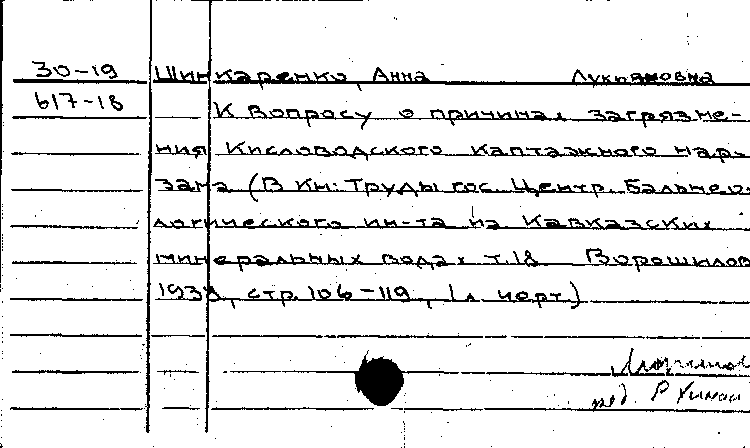 30-19 Шинкаренко, Анна Лукьяновна
617-18 К вопросу о причинах загрязне-
ния Кисловодского каптажного нар-
зана (В кн: Труды гос. Центр. Бальнео-
логического ин-та на Кавказских
минеральных водах т.18 Ворошилов
стр. 106-119, 1 л черт.)